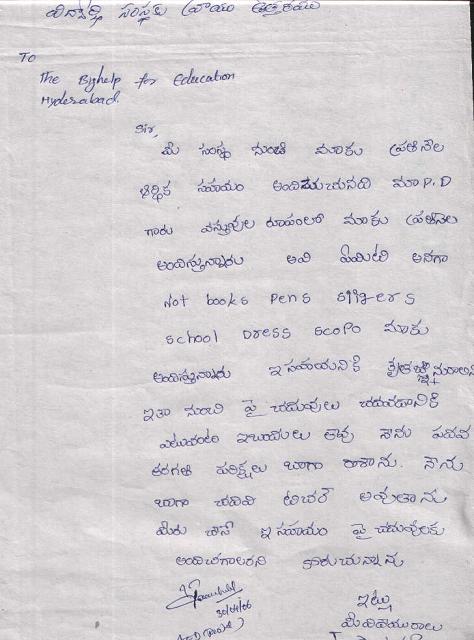 విద్యార్థి సంస్థకు వ్రాయు ఉత్తరము
To
The Bighelp for Education
Hyderabad.
Sir,
మీ సంస్థ నుంచి మాకు ప్రతినెల
ఆర్థిక సహయం అందిచుచునది మా P.D
గారు వస్తువుల రూపంలో మాకు ప్రతినెల
అందిస్తున్నారు అవి ఏమిటి అనగా
Not books Pens
School Dress Scopo మాకు
అందిస్తున్నారు ఇ సహయనికి
ఇతా నుంచి పై చదువులు చదువడానికి
ఎటువంటి ఇబందులు లేవు నేను పదవ
తరగతి పరిక్షలు బాగా రాశాను. నేను
బాగా చదివి టీచర్ అవుతాను
మీరు చేసే ఇ సహయం పై చదువులకు
అందిచగాలరని కోరుచున్నాను
30/04/06
ఇట్లు
మీ విదేయురాలు